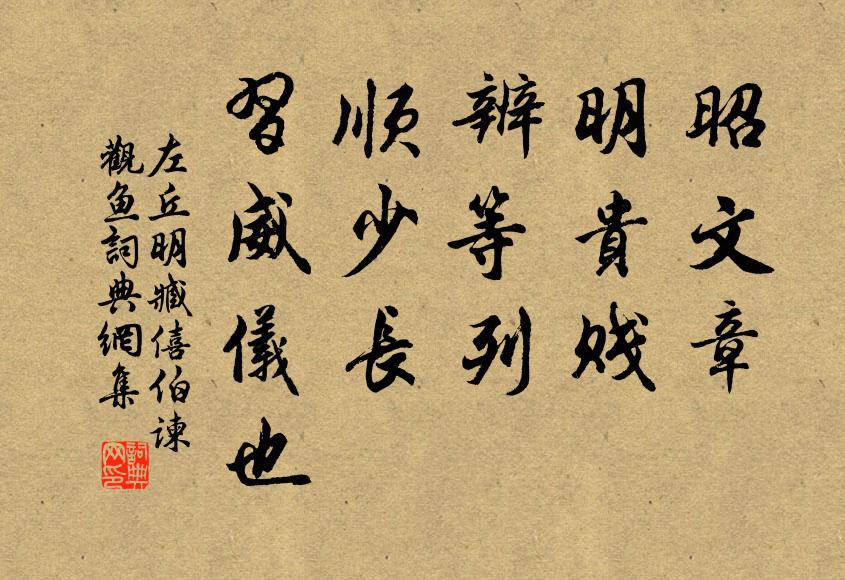 昭文章
明貴賤
辨等列
順少長
習威儀也
左丘明臧僖伯諫
觀魚詞典網集
詞典
网印